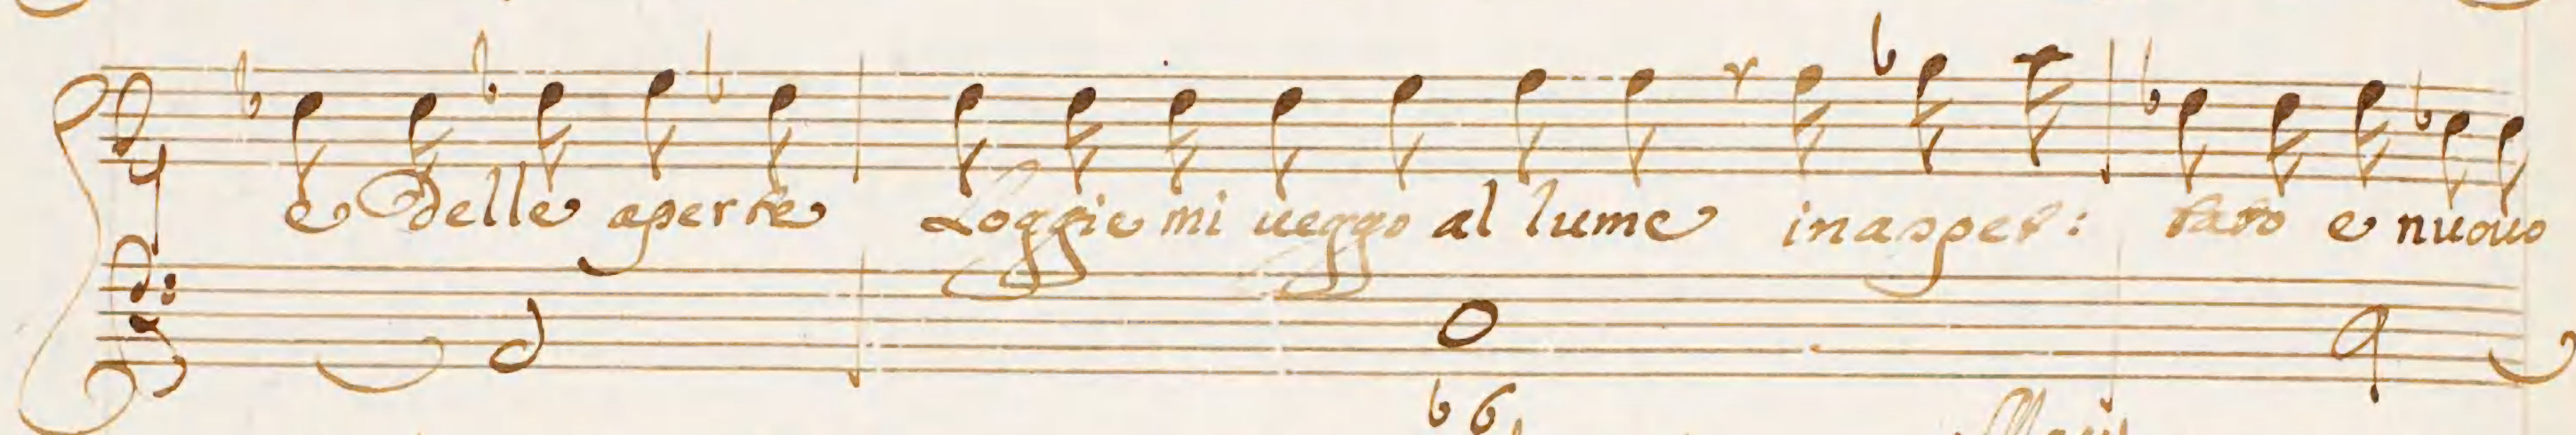 e delle aperte Loggie mi ueggo al lume inaspet: tato e nuouo
b 6